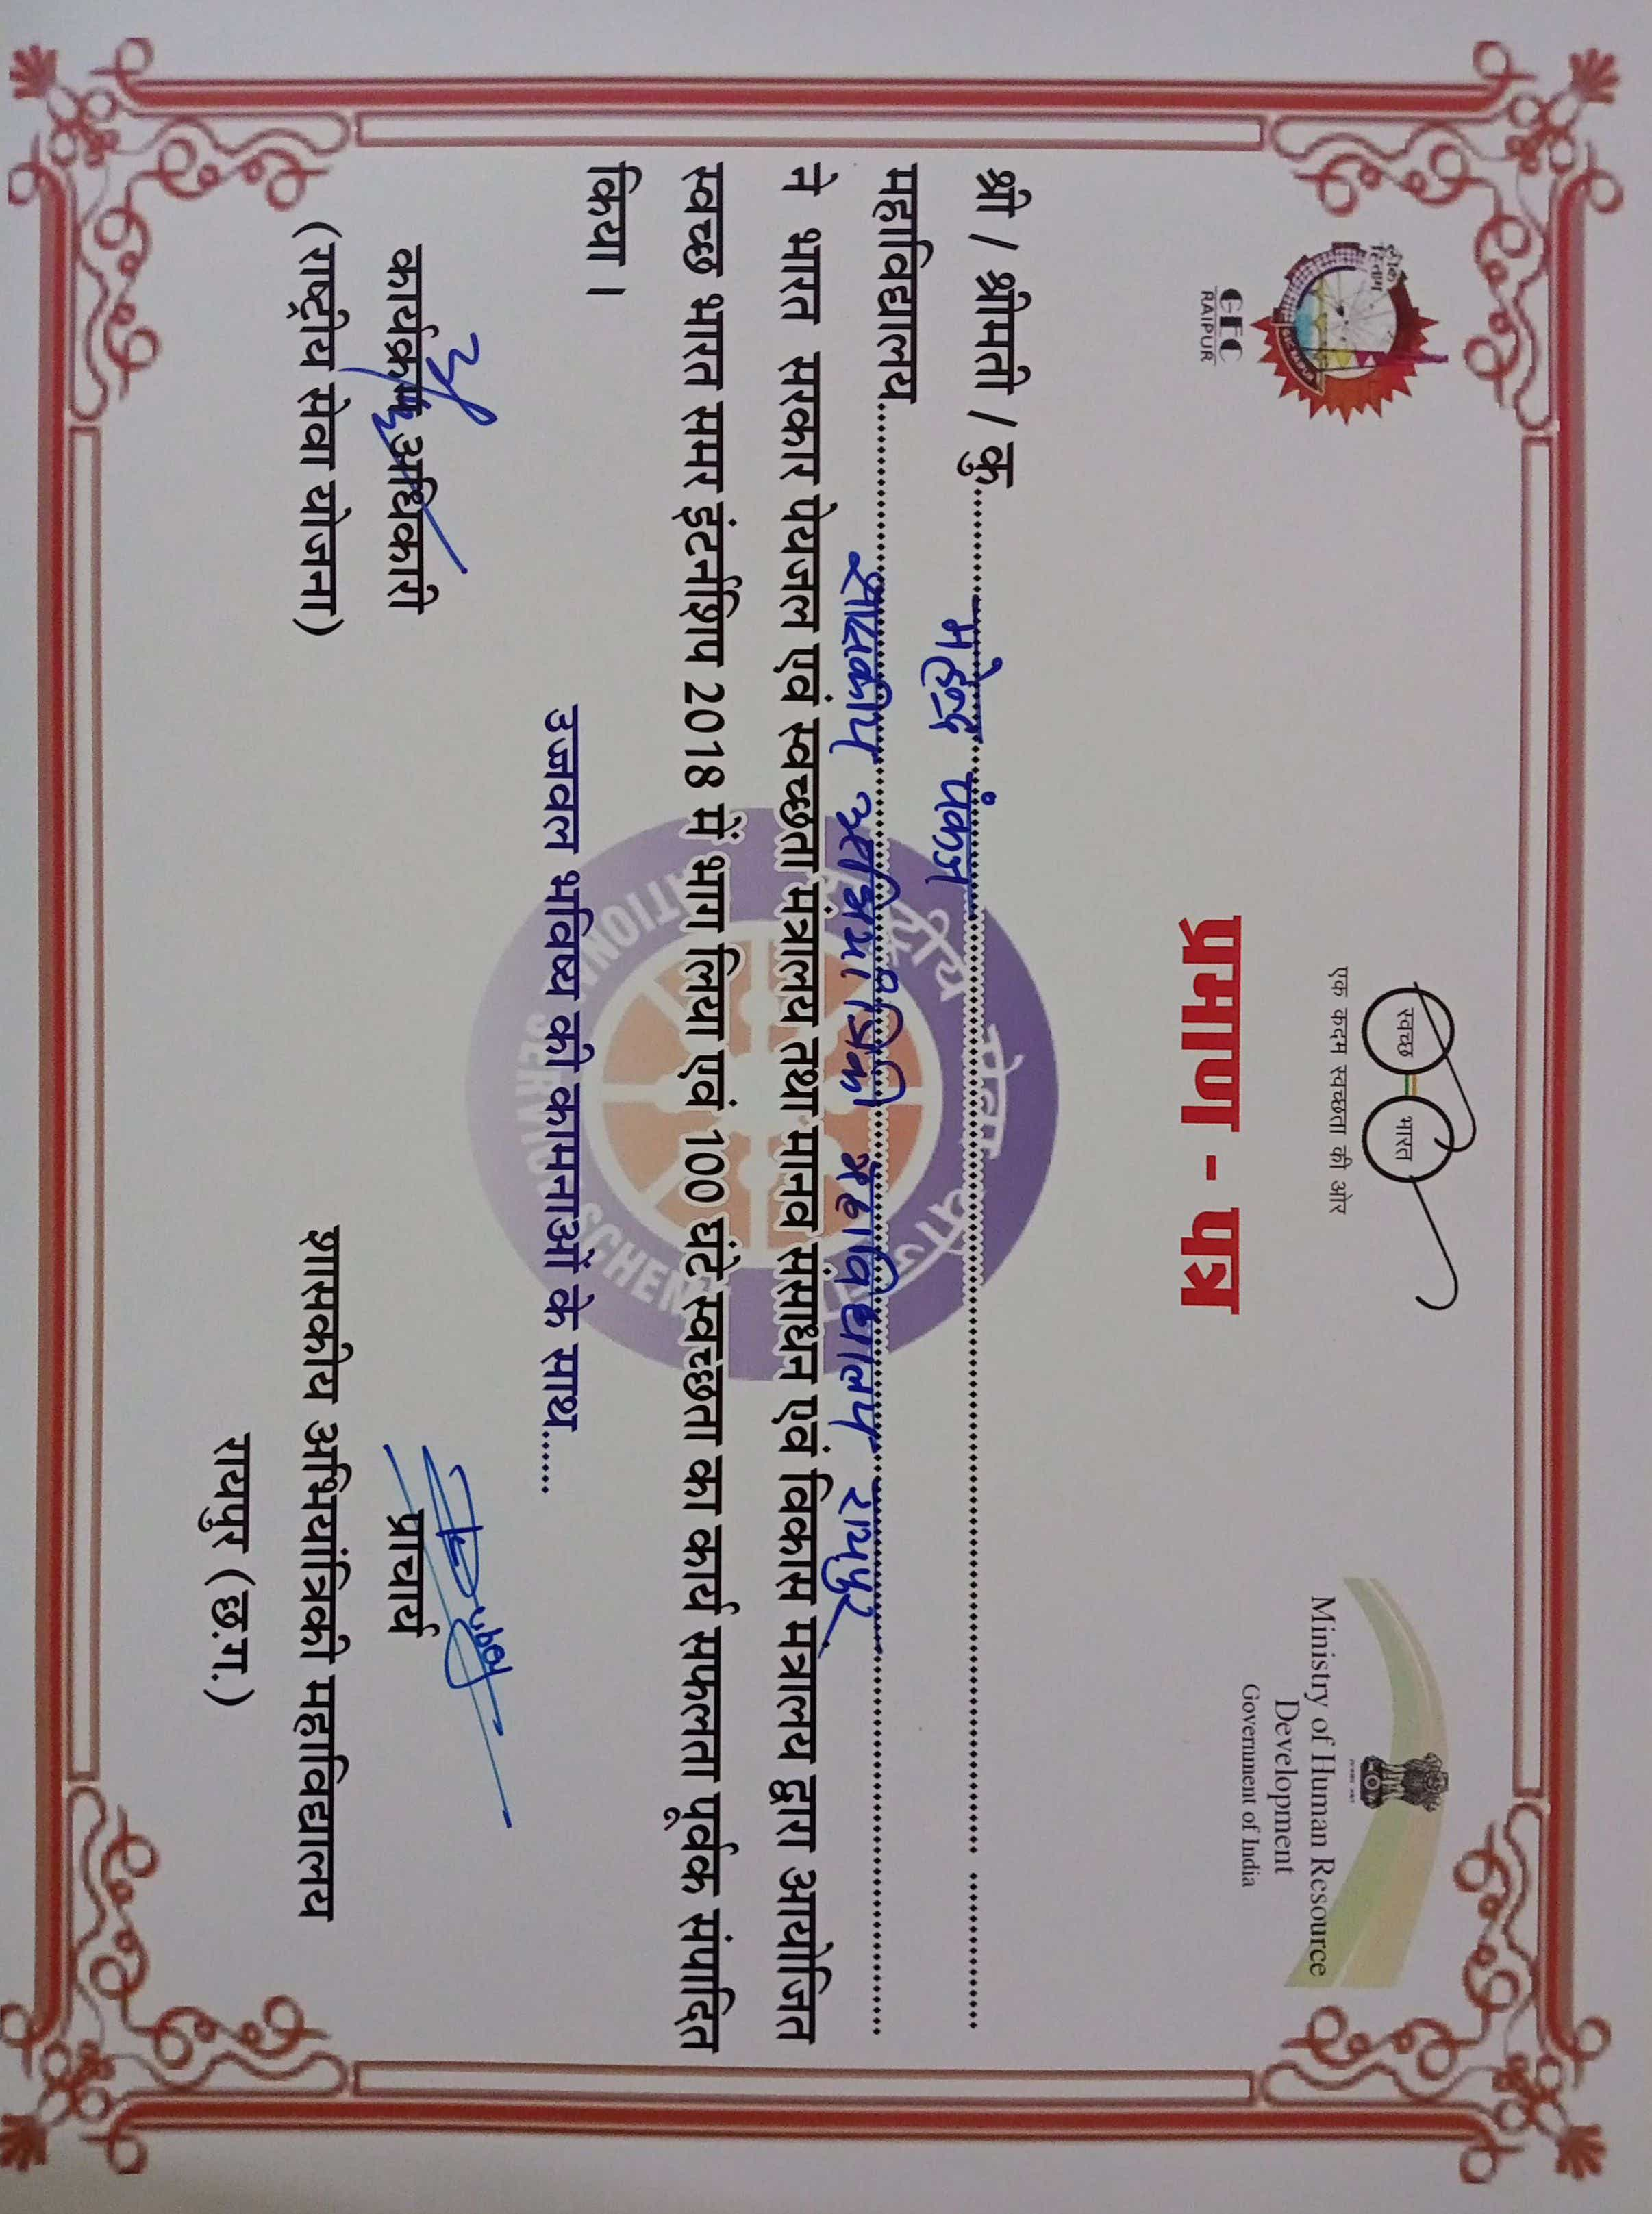 हीरक
GEC
RAIPUR
स्वच्छ भारत
एक कदम स्वच्छता की ओर
Ministry of Human Resource
Development
Government of India
प्रमाण - पत्र
श्री / श्रीमती / कु. महेन्द्र पंकज
महाविद्यालय शासकीय अभियांत्रिकी महाविद्यालय रायपुर
ने भारत सरकार पेयजल एवं स्वच्छता मंत्रालय तथा मानव संसाधन एवं विकास मंत्रालय द्वारा आयोजित
स्वच्छ भारत समर इंटर्नशिप 2018 में भाग लिया एवं 100 घंटे स्वच्छता का कार्य सफलता पूर्वक संपादित
किया ।
उज्जवल भविष्य की कामनाओं के साथ.....
राष्ट्रीय सेवा योजना
NATIONAL SERVICE SCHEME
कार्यक्रम अधिकारी
(राष्ट्रीय सेवा योजना)
प्राचार्य
शासकीय अभियांत्रिकी महाविद्यालय
रायपुर (छ.ग.)